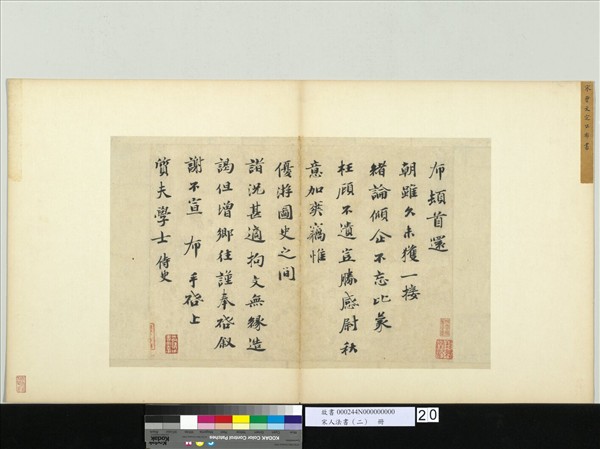 布頓首還
朝雖久未獲一接
緒論傾企不忘比蒙
枉顧不遺豈勝感尉秋
意加爽竊惟
優游國史之間
諧況甚適拘文無緣造
謁但增鄉往謹奉啓叙
謝不宣 布 手啓上
質夫學士侍史
故書 000244N000000000
宋人法書（二） 冊
20
KODAK Color Control Patches
Kodak